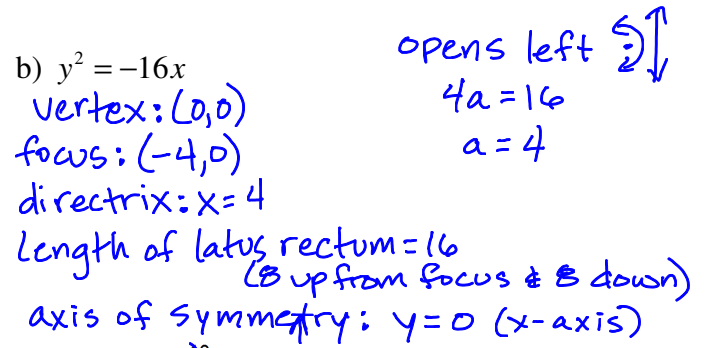 opens left
b) y² = −16x
4a = 16
vertex: (0,0)
a = 4
focus: (-4,0)
directrix: x = 4
Length of latus rectum = 16
(8 up from focus & 8 down)
axis of symmetry: y = 0 (x-axis)